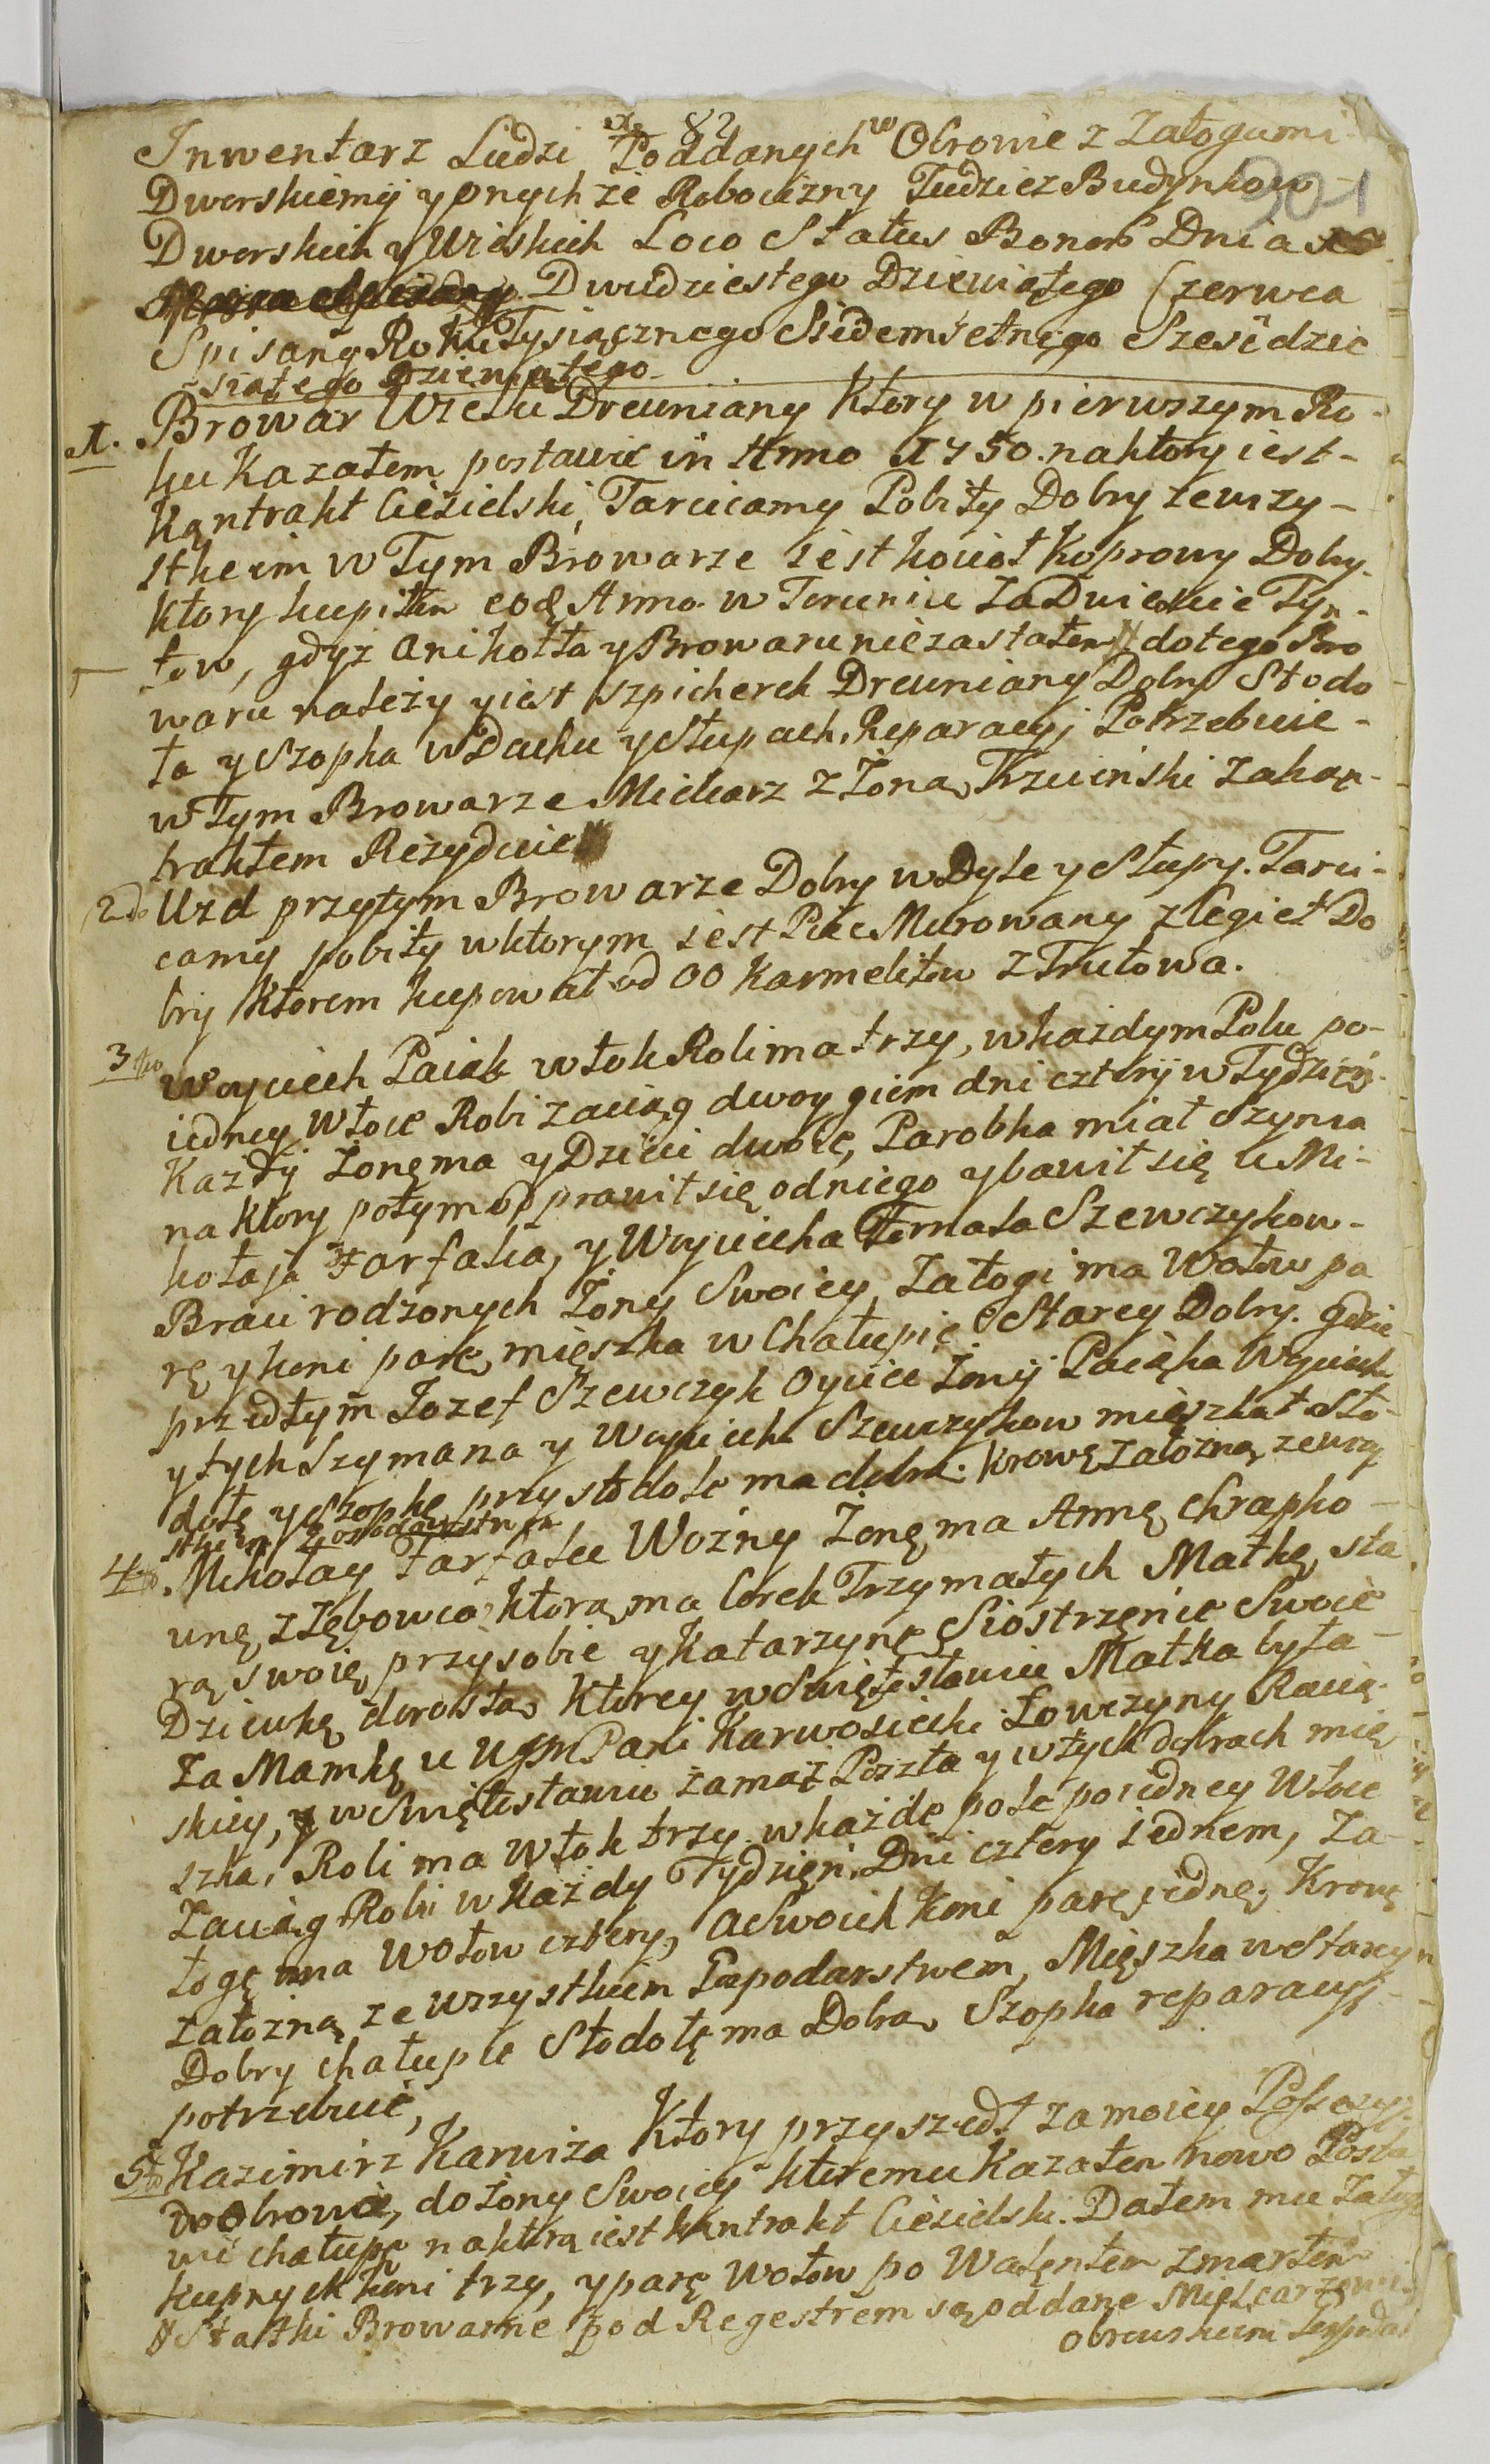 82
301
Inwentarz Ludzi Poddanych w Obrowie z Załogami
Dworskiemy y onychże Robocizny Tudziez Budynkow
Dworskich y Wieskich Loco Status Bonor Dnia
Dwudziestego Dziewiątego Czerwca
Spisany Roku Tysiącznego Siedemsetnego Szescdzie
siątego Dziewiątego
1. Browar Drewniany Ktory w pierwszym Ro-
ku Kazałem postawic in Anno 1750. na ktory iest-
Kąntrakt Cieźielski, Tarcicamy Pobity Dobry zewszy-
stkeim w Tym Browarze iest kocioł koprowy Dobry.
ktory kupiłem eod Anno w Toruniu za Dwiescie Tyn-
fow, gdyź ani kotła y Browaru niezastałem # do tego Bro
waru naleźy y iest Szpicherek Drewniany Dobry Stodo
ła y Szopka w Dachu y Słupach, Reparacyj Potrzebuie-
w Tym Browarze Mielcarz z Zoną Trzcinski za kąn-
traktem Reźyduie
2do Uzd przytym Browarze Dobry w Dyle y Słupy. Tarci-
camy pobity w ktorym iest Piec Murowany z Cegieł Do
bry ktorem kupował od OO Karmelitow z Trutowa.
3tio Woyciech Paiąk włok Roli ma trzy, w kaźdym Polu po-
iedney Włoce Robi zaciąg dwoygiem dni cztery w Tydzięń
Kazdy Zonę ma y Dzieci dwoie, Parobka miał Szyma
na ktory potym odprawił się od niego y bawił się u Mi-
kołaja Farfała, y Woyciecha Szewczykow-
Braci rodzonych Zony Swoiey, Załogi ma Wołow pa
rę y koni parę, mięszka w Chałupie Starey Dobry. gdzie
przedtym Jozef Szewczyk Oyciec Zony Paiąka Woyciecha
y tych Szymana y Woyciecha Szewczykow mięszkał Sto-
dołę y Szopkę przy stodole ma dobrą. krowę załozną zewszy
stkiem Gospodarstwem
4to. Mikołay Farfała Wozny Zonę ma Annę Chrapko-
wnę z Zębowca, ktorą ma Corek Trzy małych Matkę, sta
rą swoię, przy sobie y Katarzynę Siostrzęnie Swoie
Dziewkę dorosłą, ktorey w Swiętosławiu Matka była-
Za Mamkę u WJM Pani Karwosiecki Łowczyny Racią-
skiey, y w Swiętosławiu zamąz Poszła y w tych dobrach mię
szka, Roli ma Włok trzy. w kaźde pole po iedney Włoce
Zaciąg Robi w Kaźdy Tydzięń Dni cztery iednem, Za-
łogę ma Wołow cztery, a swoich koni parę iednę, Krowę
załozną ze wszystkiem Gospodarstwem, Mięszka w Starey
Dobry chałupie Stodołę ma Dobrą Szopka reparacyj-
potrzebuie,
5to Kazimirz Karwiza Ktory przyszedł za moiey Possesyj
do Obrowie, do Zony Swoiey ktoremu Kazałem nowo Posta
wić chałupę na ktorą iest kąntrakt Cieźielski. Dałem mu Załogi
kupnych koni trzy, y parę Wołow po Walętem zmarłem
# Statki Browarne pod Regestrem są oddane Mielcarzowi